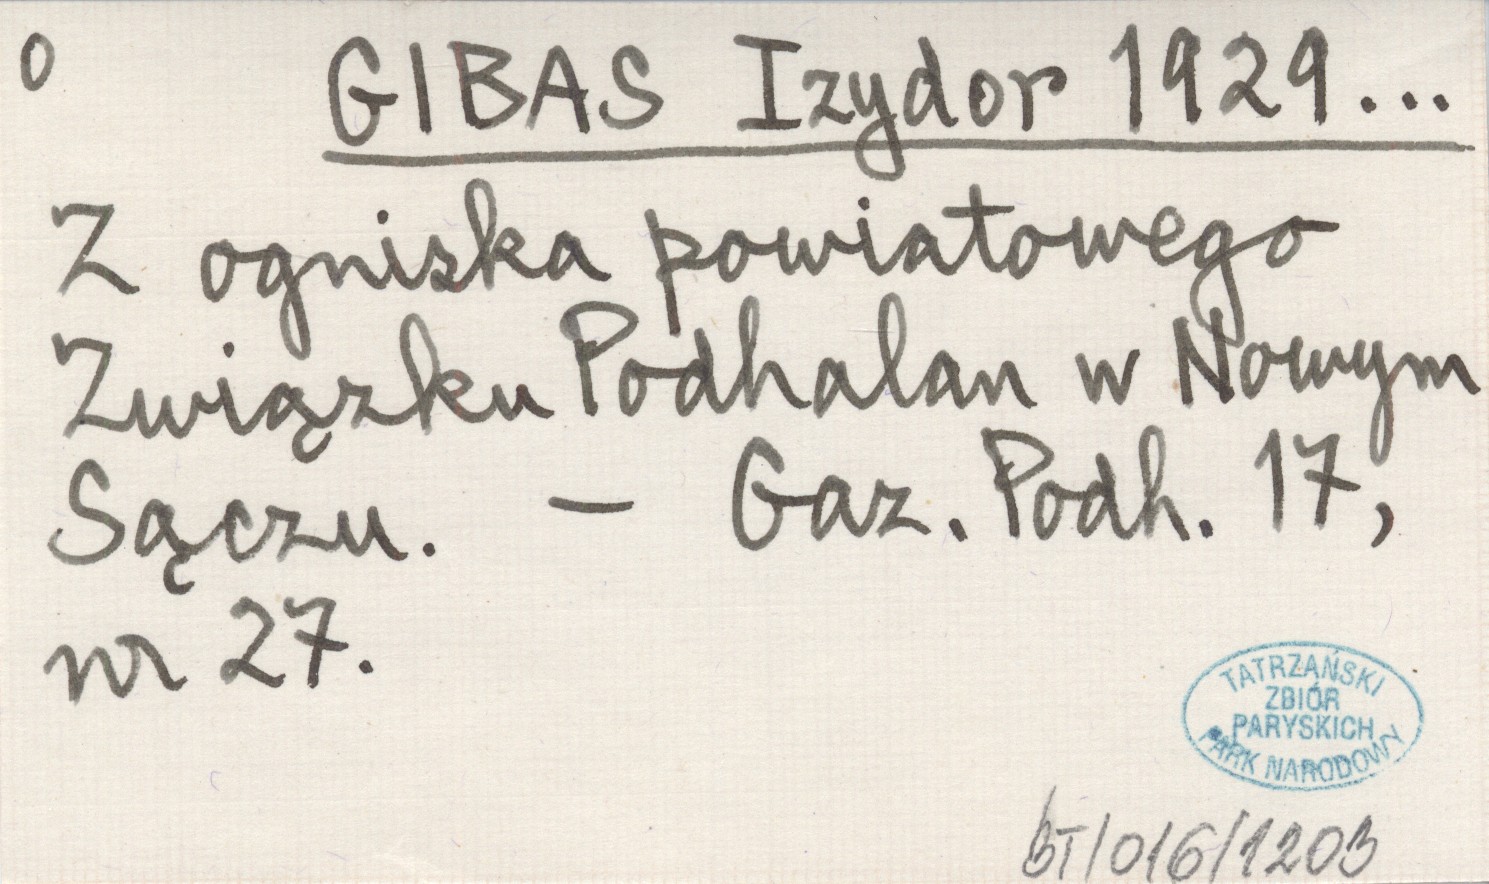 o GIBAS Izydor 1929...
Z ogniska powiatowego
Związku Podhalan w Nowym
Sączu. – Gaz. Podh. 17,
nr 27.
TATRZAŃSKI
ZBIÓR
PARYSKICH
PARK NARODOWY
BT/016/1203